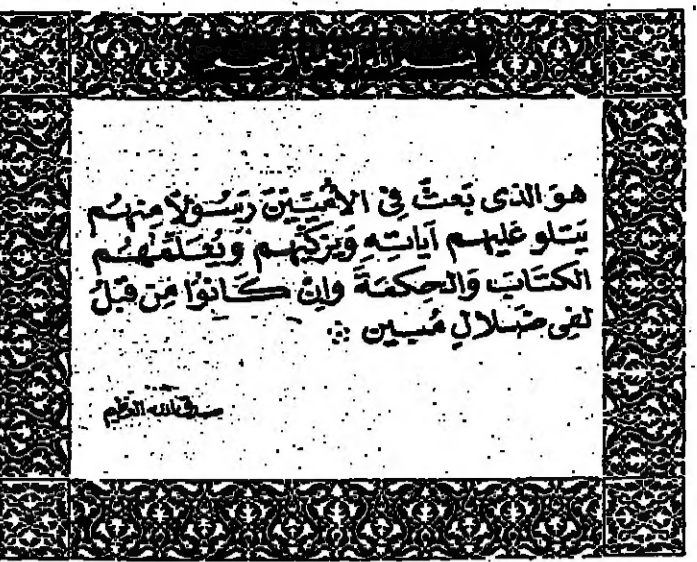 بسم الله الرحمن الرحيم
هوَ الذى بَعثَ فِى الأُمِيّيَنَ رَسُولاً مِنهُم
يَتلو عَليهم آيَاتهِ وَيُزكيّهم وَيُعَلّمُهُم
الكتَابَ وَالحِكمَةَ وَإن كَانوُا مِن قَبلُ
لفِى ضَلالٍ مُبين
صدق الله العظيم